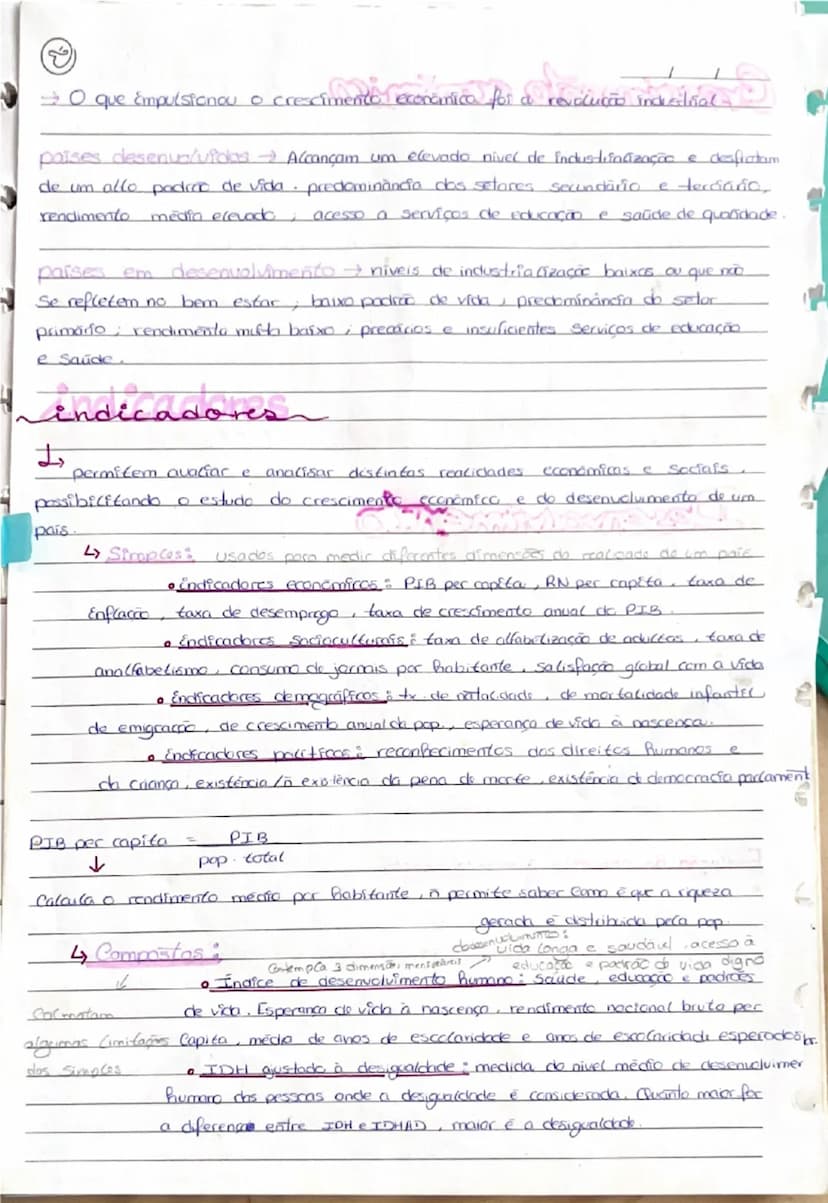 2
→ O que impulsionou o crescimento económico foi a revolução industrial
países desenvolvidos → Alcançam um elevado nível de industrialização e desfrutam
de um alto padrão de vida. predominância dos setores secundário e terciário,
rendimento médio elevado, acesso a serviços de educação e saúde de qualidade.
países em desenvolvimento → níveis de industrialização baixos ou que não
se refletem no bem estar; baixo padrão de vida, predominância do setor
primário; rendimento baixo; precários e insuficientes serviços de educação
e saúde.
indicadores
↳ permitem avaliar e analisar distintas realidades económicas e sociais,
possibilitando o estudo do crescimento económico e do desenvolvimento de um
país.
↳ Simples: usados para medir diferentes dimensões da realidade de um país
• indicadores económicos: PIB per capita, RN per capita, taxa de
inflação, taxa de desemprego, taxa de crescimento anual do PIB.
• indicadores socioculturais: taxa de alfabetização de adultos, taxa de
analfabetismo, consumo de jornais por habitante, satisfação global com a vida
• indicadores demográficos: tx. de natalidade, de mortalidade infantil
de emigração, de crescimento anual da pop., esperança de vida à nascença.
• indicadores políticos: reconhecimentos dos direitos humanos e
da criança, existência/ñ existência da pena de morte, existência de democracia parlament
PIB per capita = PIB
pop. total
↓
Calcula o rendimento médio por habitante, ñ permite saber como é que a riqueza
gerada é distribuída pela pop.
↳ Compostos:
Contempla 3 dimensões
vida longa e saudável, acesso à
educação e padrão de vida digno
• Índice de desenvolvimento humano: Saúde, educação e padrões
de vida. Esperança de vida à nascença, rendimento nacional bruto per
capita, média de anos de escolaridade e anos de escolaridade esperados
algumas limitações
dos simples
• IDH ajustado à desigualdade: medida do nível médio de
humano das pessoas onde a desigualdade é considerada. Quanto maior for
a diferença entre IDH e IDHAD, maior é a desigualdade.